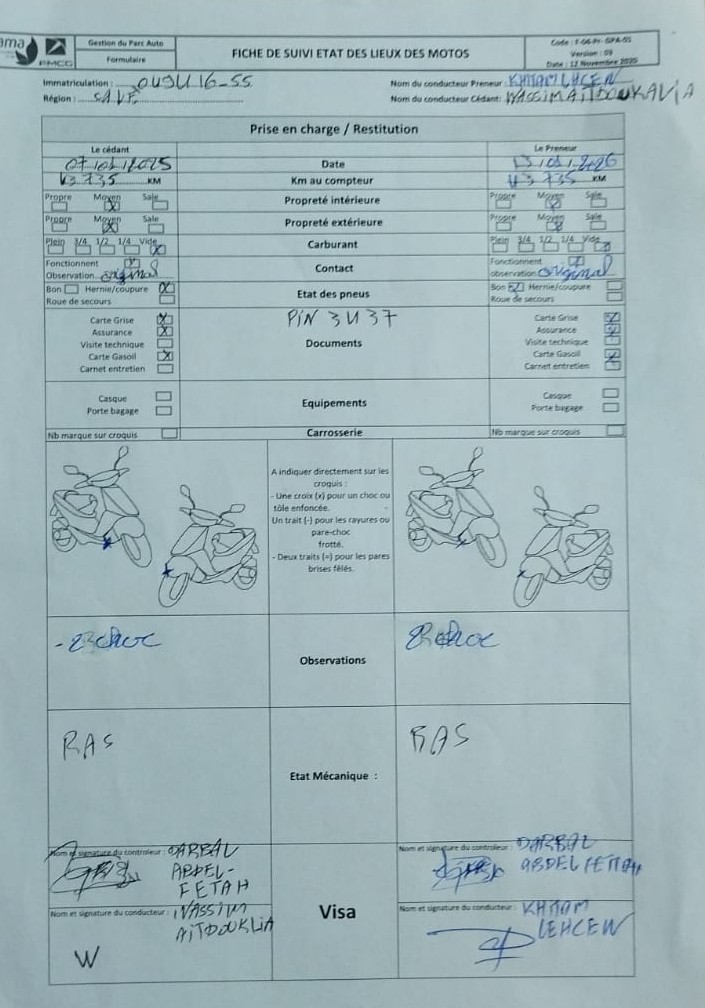 ama
PMCG
Gestion du Parc Auto
Formulaire
FICHE DE SUIVI ETAT DES LIEUX DES MOTOS
Version : 03
Date : 12 Novembre 2020
Immatriculation :
Région :
Nom du conducteur Preneur : KHTAM LEHCEN
Nom du conducteur Cédant : WASSIM
Prise en charge / Restitution
Le cédant
Le Preneur
Date
43735 KM
Km au compteur
43735 KM
Propre Moyen Sale
Propreté intérieure
Propre Moyen Sale
Propre Moyen Sale
Propreté extérieure
Propre Moyen Sale
Plein 3/4 1/2 1/4 Vide
Carburant
Plein 3/4 1/2 1/4 Vide
Fonctionnent
Observation original
Contact
Fonctionnent
observation original
Bon Hernie/coupure
Roue de secours
Etat des pneus
Bon Hernie/coupure
Roue de secours
Carte Grise
Assurance
Visite technique
Carte Gasoil
Carnet entretien
PIN 3437
Documents
Carte Grise
Assurance
Visite technique
Carte Gasoil
Carnet entretien
Casque
Porte bagage
Equipements
Casque
Porte bagage
Nb marque sur croquis
Carrosserie
Nb marque sur croquis
A indiquer directement sur les
croquis :
- Une croix (x) pour un choc ou
tôle enfoncée.
Un trait (-) pour les rayures ou
pare-choc
frotté.
- Deux traits (=) pour les pares
brises fêlés.
choc
Observations
choc
RAS
Etat Mécanique :
RAS
Nom et signature du controleur : DARBAL
ABDEL-
FETAH
Nom et signature du controleur : DARBAL
ABDELFETTAH
Nom et signature du conducteur : WASSIM
W
Visa
Nom et signature du conducteur : KHTAM
LEHCEN